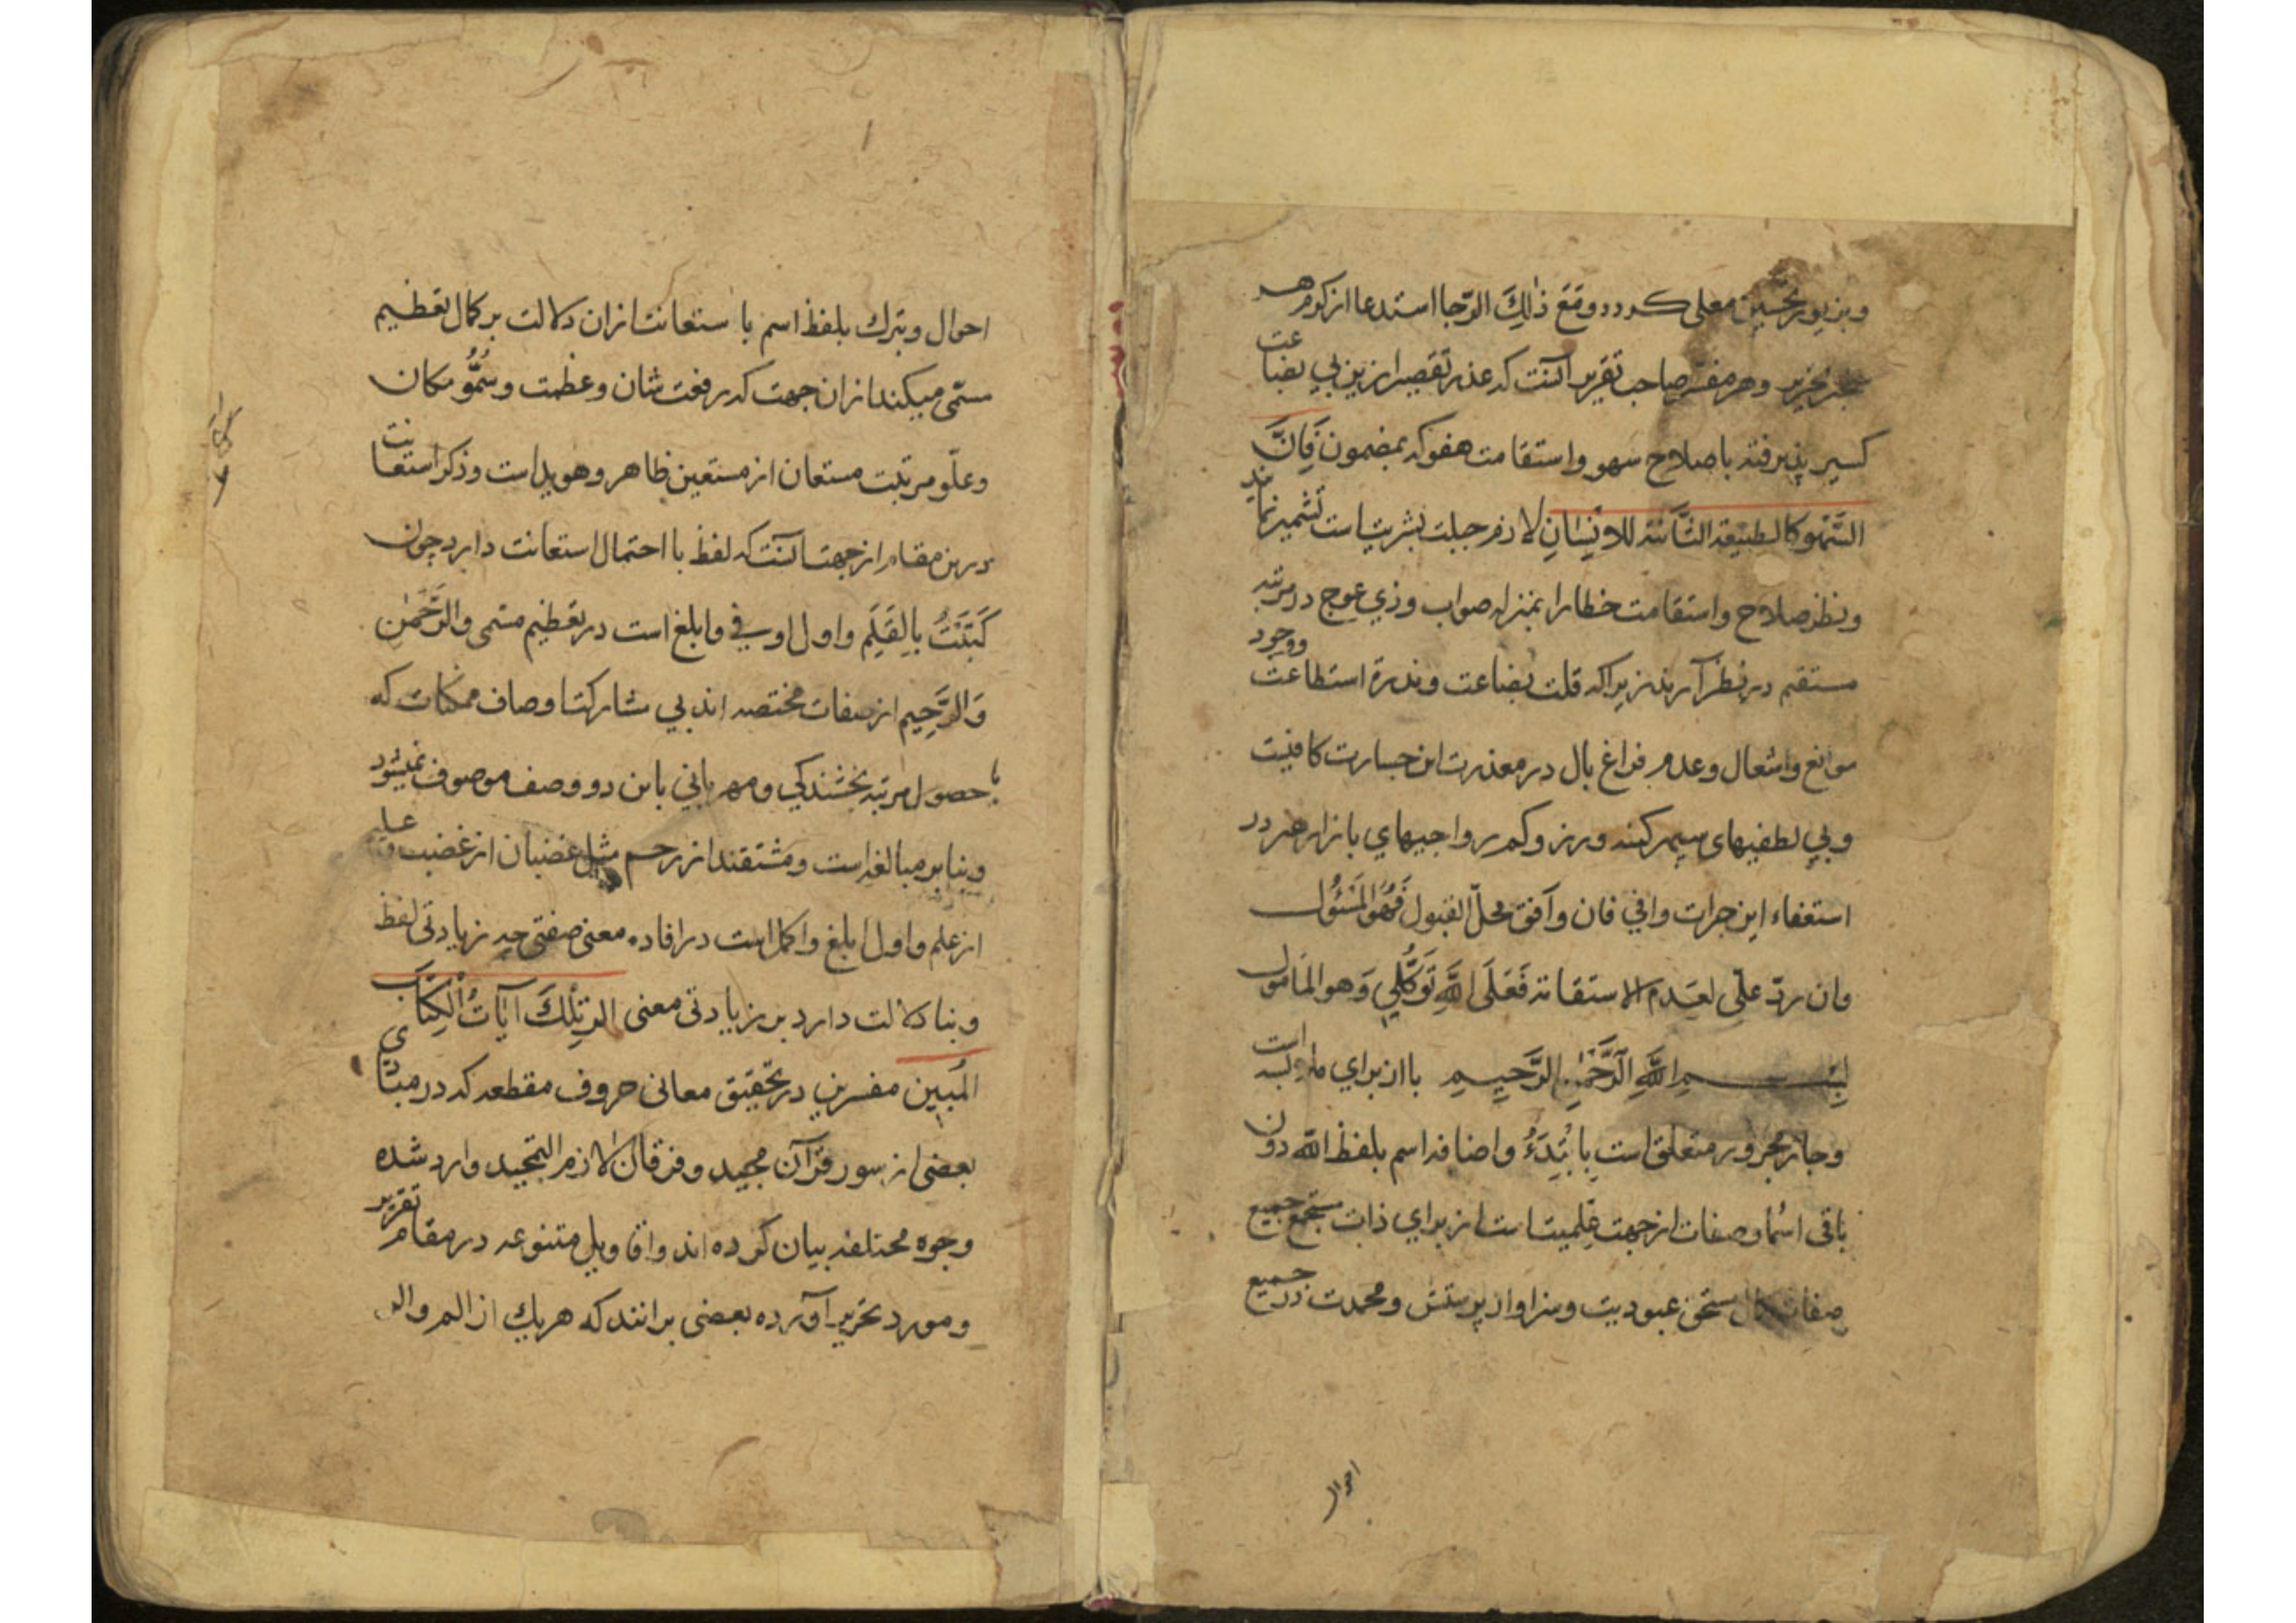 وبزیور تحسین معلی کردد ووقع ذٰلِكَ الرّجا استدعا از کرم هر
نحریر وهر مفسر صاحب تقریر آنست که عذر تقصیر ازین بی بضاعت
کسیر پذیرفته باصلاح سهو واستقامت هفو که بمضمون فَاِنَّ
السَّهْو کالطبیعة الثَّانیَة للاِنْسَانِ لازم جبلت بشریت است تشمیر نمایند
ونظر صلاح واستقامت خطا را بمنزله صواب وذی عوج در مرتبه
مستقیم در نظر آرند زیراکه قلت بضاعت وندرة استطاعت ووجود
موانع واشغال وعدم فراغ بال در معذرت این جسارت کافیست
وبی لطفیهای سپهر کینه ورز وکم رواجیهای بازار هنر در
استعفاء این جرات وافی فان وآفق محلّ القبول فَهُوَ المَسْئُول
وان ردّ علی لعَدم الاستقامة فَعَلَی اللّٰهِ تَوَکُّلِي وَهو المَامول
بِسْمِ اللّٰهِ الرَّحْمٰنِ الرَّحِيمِ با از برای ملابسه است
وجار مجرور متعلق است بِاَبْتَدِءُ واضافه اسم بلفظ اللّٰه دون
باقی اسما وصفات از جهت عَلمیت است از برای ذات مستجمع جمیع
صفات کمال مستحق عبودیت وسزاوار پرستش ومحمدت در جمیع
احوال
احوال وتبرك بلفظ اسم با ستعانت ازان دلالت بر کمال تعظیم
مسمّی میکند ازان جهت که رفعت شان وعظمت وسُمُوُّ مکان
وعلّو مرتبت مستعان از مستعین ظاهر وهویداست وذکر استعانت
درین مقام از جهت آنست که لفظ با احتمال استعانت دارد چون
کَتَبْتُ بِالقَلَمِ واول اوفی وابلغ است در تعظیم مسمی والرَّحْمٰنِ
وَالرَّحِیمِ از صفات مختصه اند بی مشارکت اوصاف ممکنات که
با حصول مرتبه بخشندکی ومهربانی باین دو وصف موصوف نمیشود
وبنا بر مبالغه است ومشتقند از رحم مثل غضبان از غضب وعلیم
از علم واول ابلغ واکمل است در افاده معنی صفتی چه زیادتی لفظ
وبنا دلالت دارد بر زیادتی معنی الٓر تِلْكَ آيَاتُ الْكِتَابِ
المُبِین مفسرین در تحقیق معانی حروف مقطعه که در مبادی
بعضی از سور قرآن مجید وفرقان لازم التمجید وارد شده
وجوه مختلفه بیان کرده اند واقاویل متنوعه در مقام تقریر
ومورد تحریر آورده بعضی برانند که هریك از الم والر